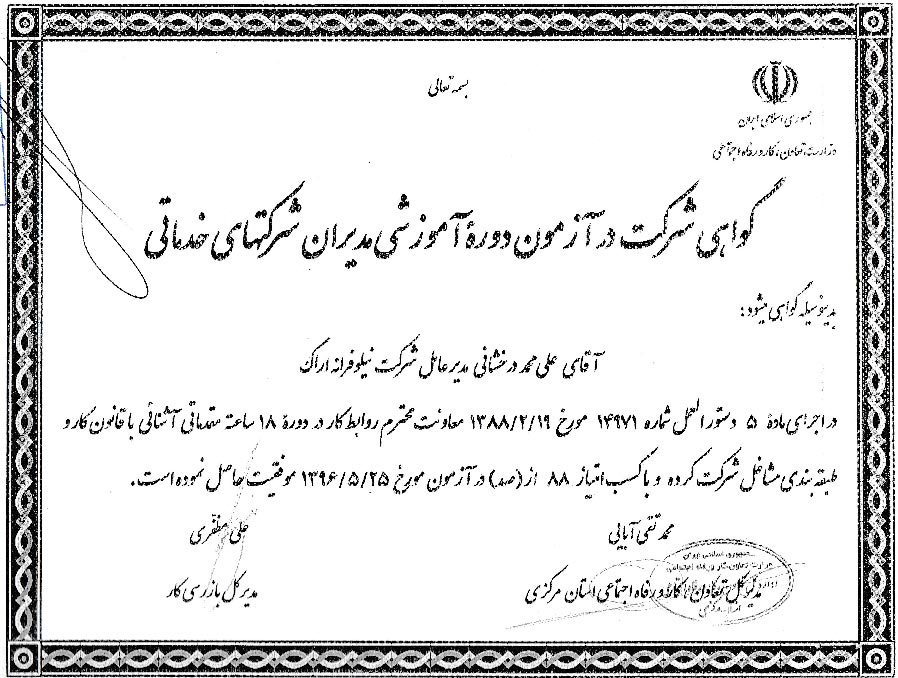 بسمه تعالی
جمهوری اسلامی ایران
وزارت تعاون، کار و رفاه اجتماعی
گواهی شرکت در آزمون دورهٔ آموزشی مدیران شرکتهای خدماتی
بدینوسیله گواهی میشود:
آقای علی محمد درخشانی مدیر عامل شرکت نیلوفرانه اراک
در اجرای مادهٔ ۵ دستورالعمل شماره ۱۴۹۷۱ مورخ ۱۳۸۸/۲/۱۹ معاونت محترم روابط کار در دورهٔ ۱۸ ساعته مقدماتی آشنائی با قانون کار و
طبقه بندی مشاغل شرکت کرده و با کسب امتیاز ۸۸ از (صد) در آزمون مورخ ۱۳۹۶/۵/۲۵ موفقیت حاصل نموده است.
محمد تقی آبایی
علی مظفری
مدیر کل تعاون، کار و رفاه اجتماعی استان مرکزی
مدیر کل بازرسی کار
جمهوری اسلامی ایران